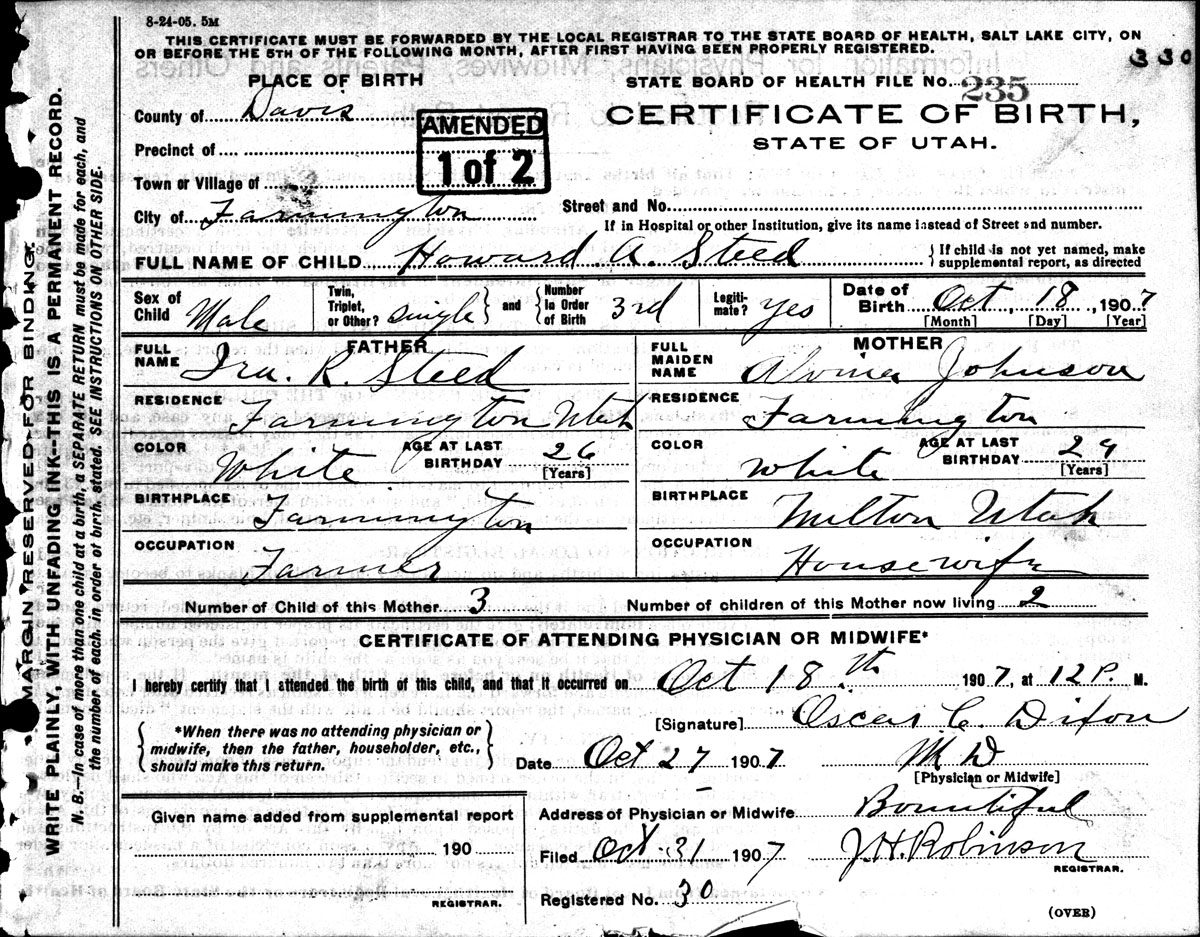 8-24-05. 5M
THIS CERTIFICATE MUST BE FORWARDED BY THE LOCAL REGISTRAR TO THE STATE BOARD OF HEALTH, SALT LAKE CITY, ON
OR BEFORE THE 5TH OF THE FOLLOWING MONTH, AFTER FIRST HAVING BEEN PROPERLY REGISTERED.
330
PLACE OF BIRTH
STATE BOARD OF HEALTH FILE No. 235
County of Davis
AMENDED
1 of 2
CERTIFICATE OF BIRTH,
STATE OF UTAH.
Precinct of
Town or Village of
City of Farmington
Street and No.
If in Hospital or other Institution, give its name instead of Street and number.
FULL NAME OF CHILD Howard A. Steed
{ If child is not yet named, make
supplemental report, as directed
Sex of Child Male
Twin, Triplet, or Other? single } and { Number in Order of Birth 3rd
Legitimate? yes
Date of Birth Oct, 18, 1907
[Month] [Day] [Year]
FATHER
FULL NAME Ira. R. Steed
RESIDENCE Farmington Utah
COLOR White
AGE AT LAST BIRTHDAY 26
[Years]
BIRTHPLACE Farmington
OCCUPATION Farmer
MOTHER
FULL MAIDEN NAME Johnson
RESIDENCE Farmington
COLOR White
AGE AT LAST BIRTHDAY
[Years]
BIRTHPLACE Milton Utah
OCCUPATION Housewife
Number of Child of this Mother 3
Number of children of this Mother now living 2
CERTIFICATE OF ATTENDING PHYSICIAN OR MIDWIFE*
I hereby certify that I attended the birth of this child, and that it occurred on Oct 18th 1907, at 12 P. M.
{ *When there was no attending physician or
midwife, then the father, householder, etc.,
should make this return. }
[Signature] Oscar C. Dixon
Date Oct 27 1907 M D
[Physician or Midwife]
Given name added from supplemental report
190
REGISTRAR.
Address of Physician or Midwife Bountiful
Filed Oct. 31 1907 J. H. Robinson
REGISTRAR.
Registered No. 30
(OVER)
MARGIN RESERVED FOR BINDING.
WRITE PLAINLY, WITH UNFADING INK--THIS IS A PERMANENT RECORD.
N. B.—In case of more than one child at a birth, a SEPARATE RETURN must be made for each, and
the number of each, in order of birth, stated. SEE INSTRUCTIONS ON OTHER SIDE.